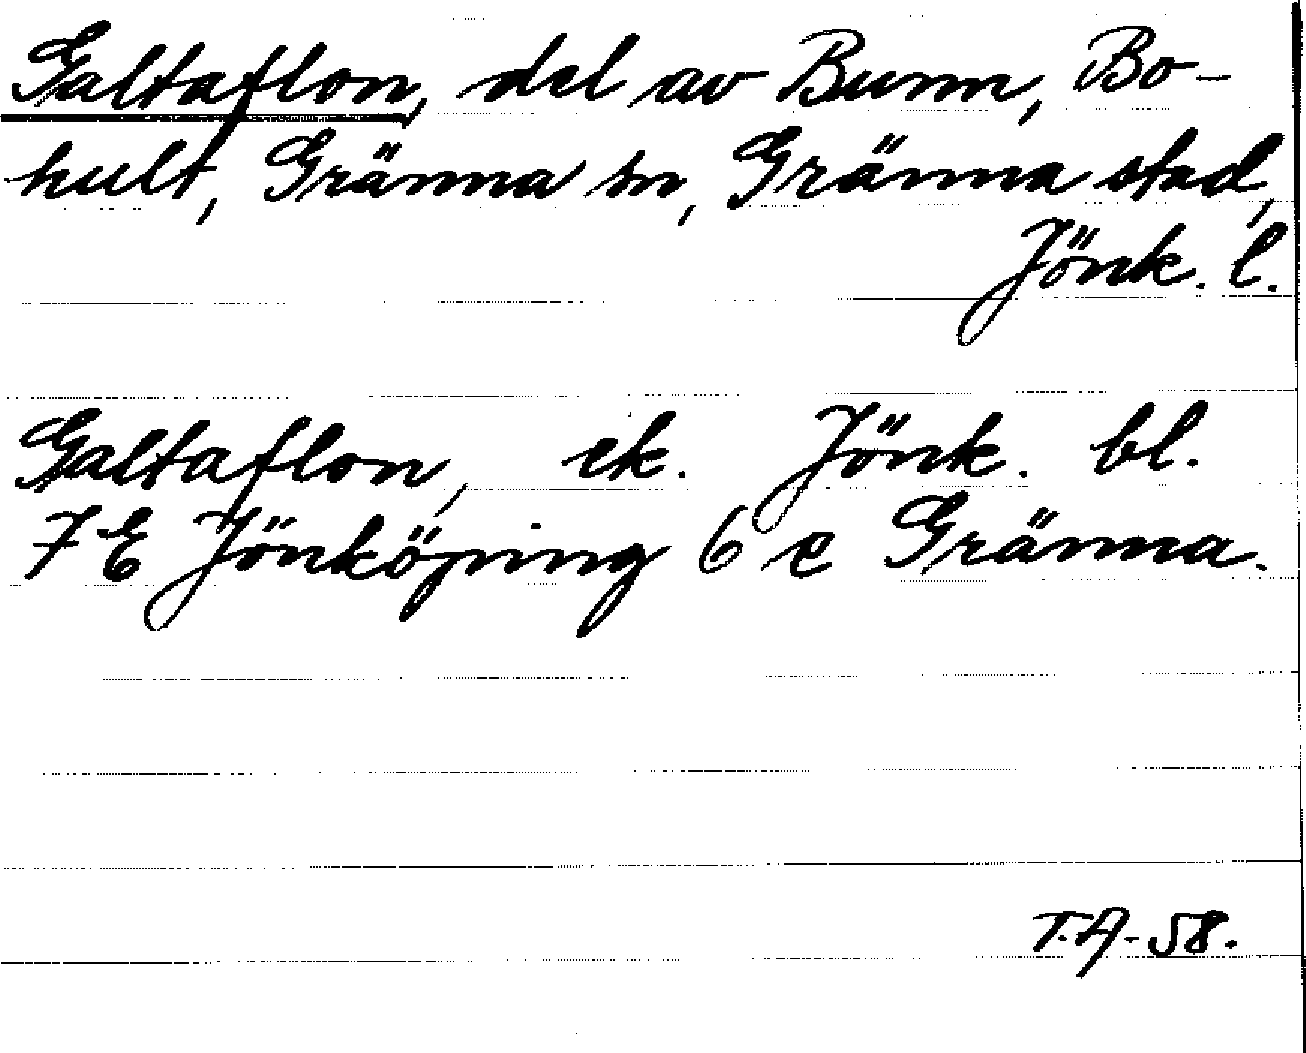 Galtaflon, del av Bunn, Bo-
hult, Gränna sn, Gränna stad,
Jönk. l.
Galtaflon, ek. Jönk. bl.
7 E Jönköping 6 c Gränna.
T.A-58.